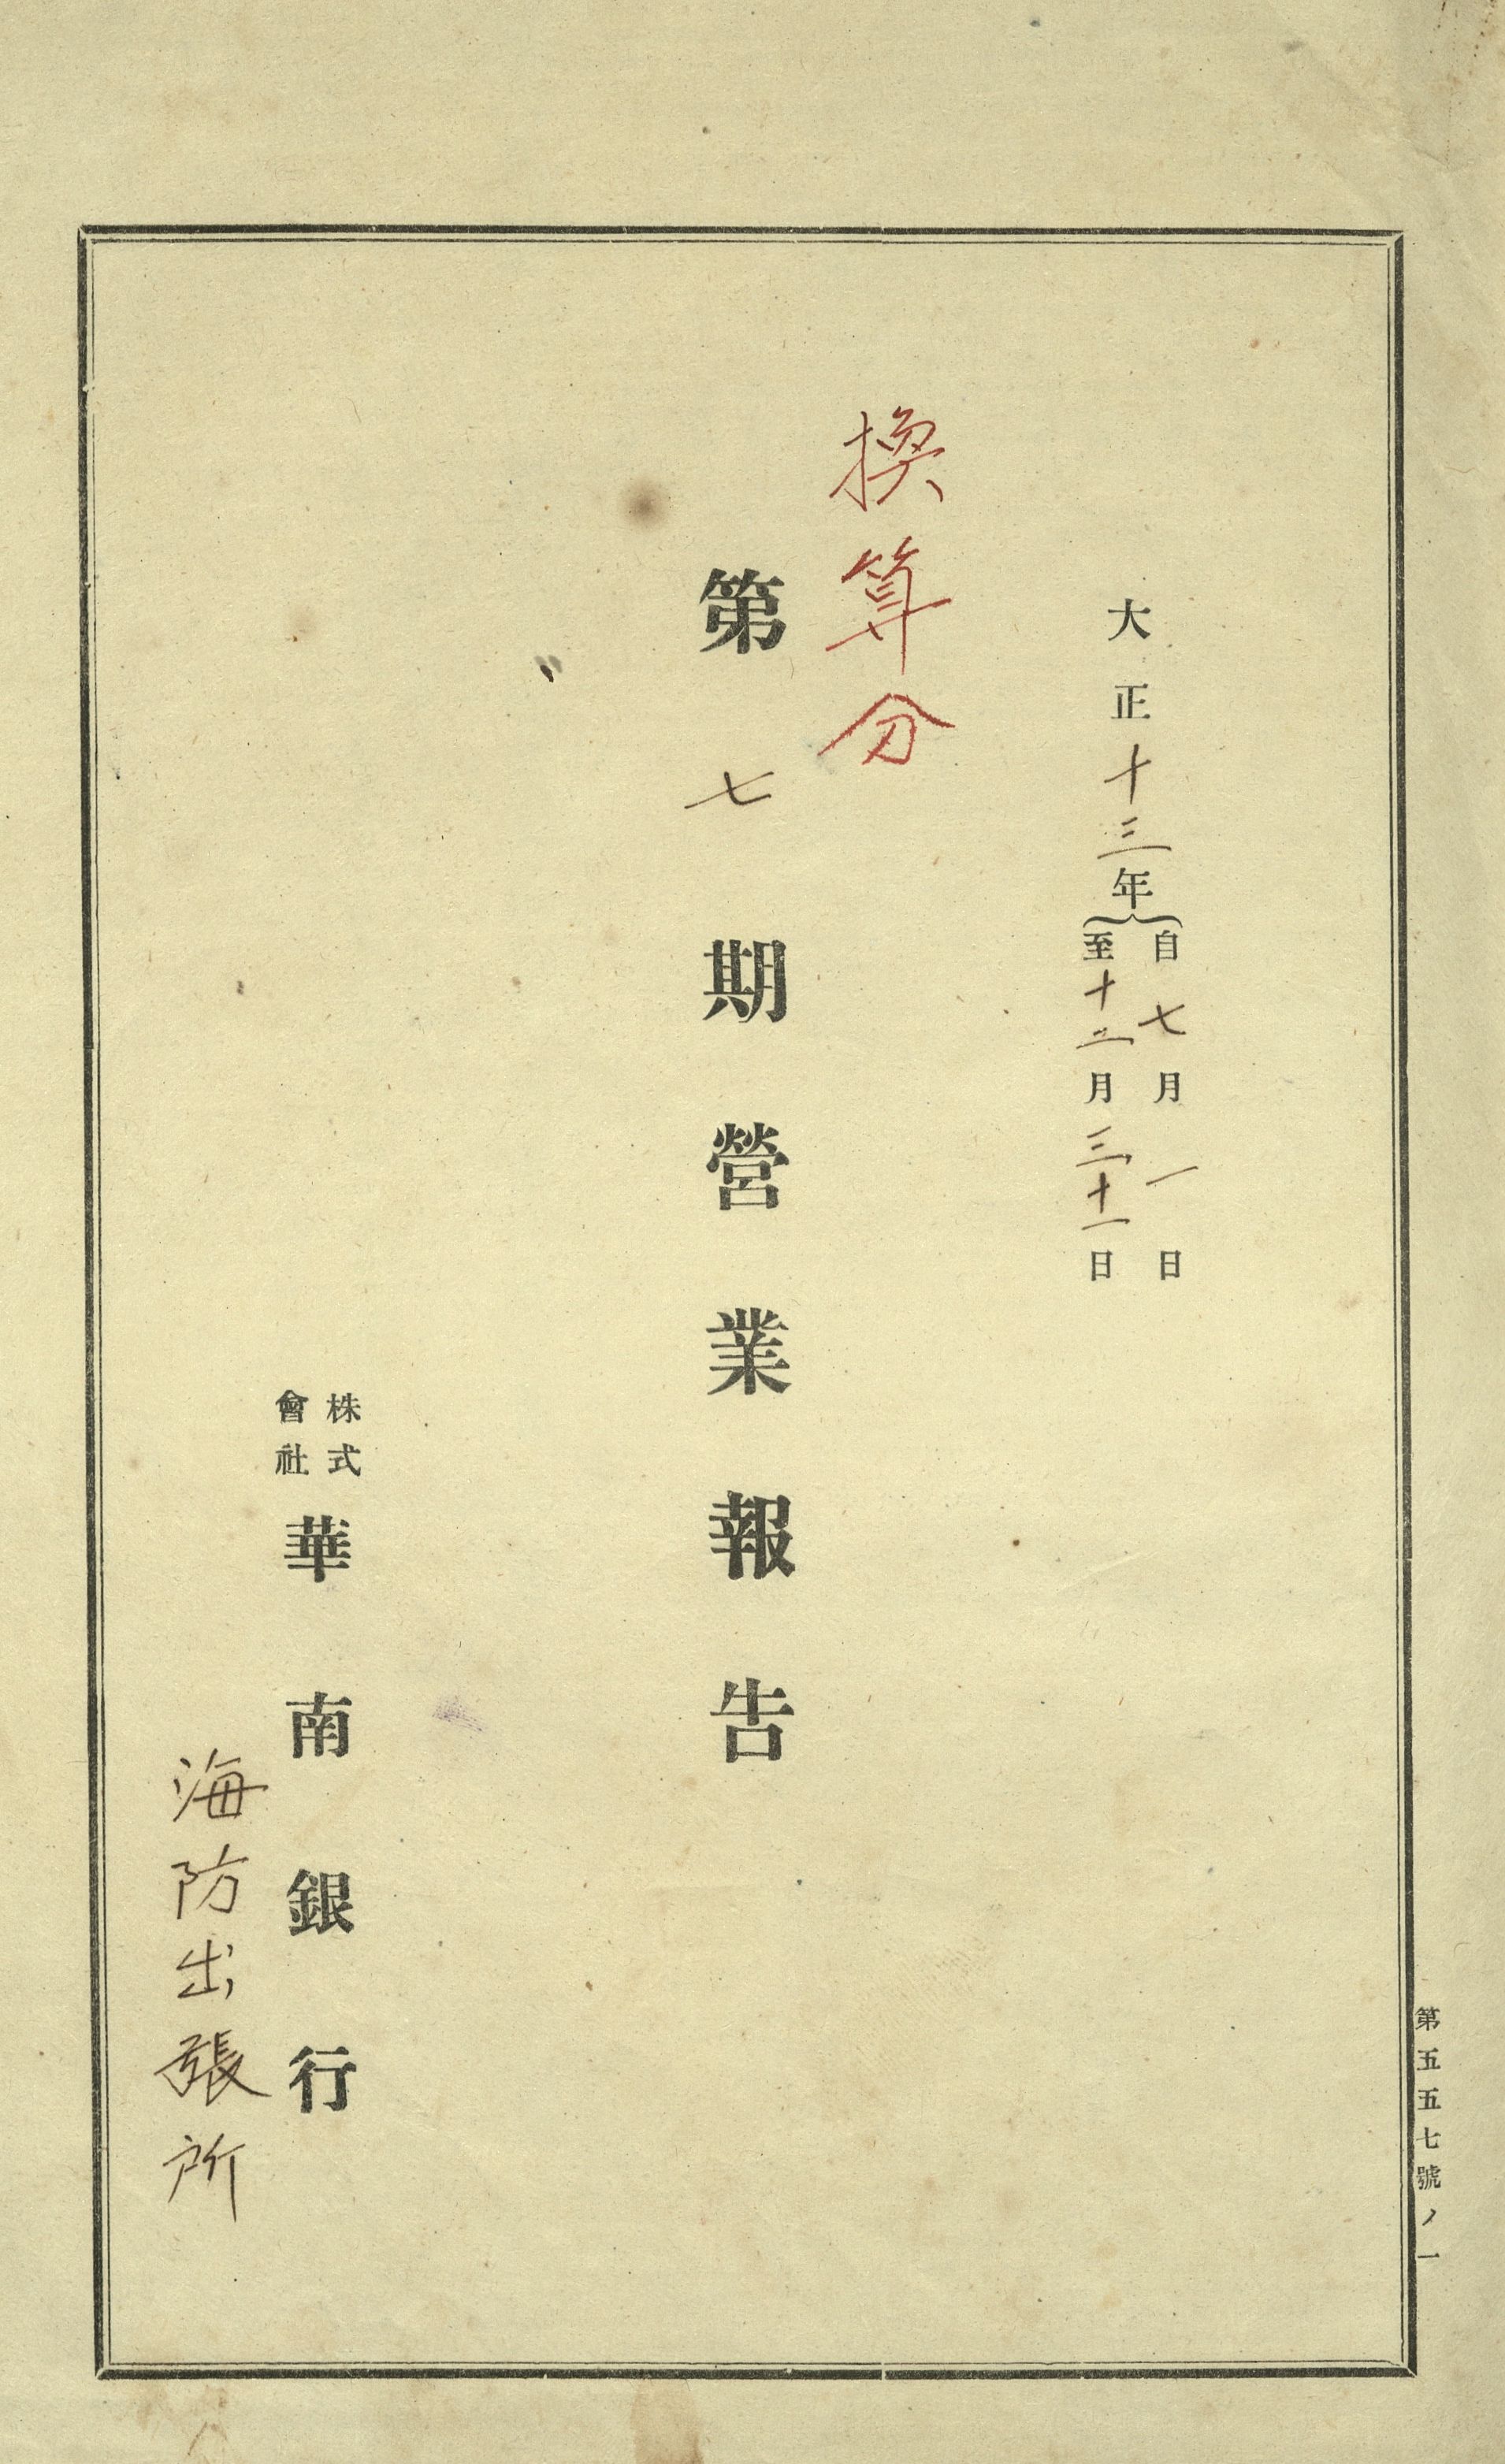 大正十三年
自七月一日
至十二月三十一日
換算分
第七期營業報告
株式會社華南銀行
海防出張所
第五五七號ノ一